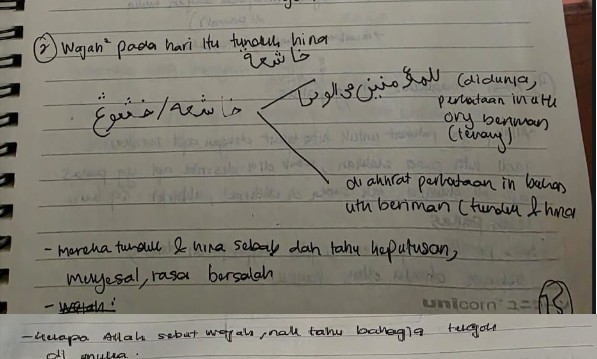 ② Wajah² pada hari itu tunduk hina
خاشعة
خاشعة / خشوع
للمؤمنين في الدنيا (didunia,
perkataan ini utk
org beriman
(tenang)
di akhrat perkataan ini bukan
utk beriman (tunduk & hina
- Mereka tunduk & hina sebab dah tahu keputusan,
menyesal, rasa bersalah
- wajah:
unicorn
13
- Kenapa Allah sebut wajah, nak tahu bahagia tengok
di muka.